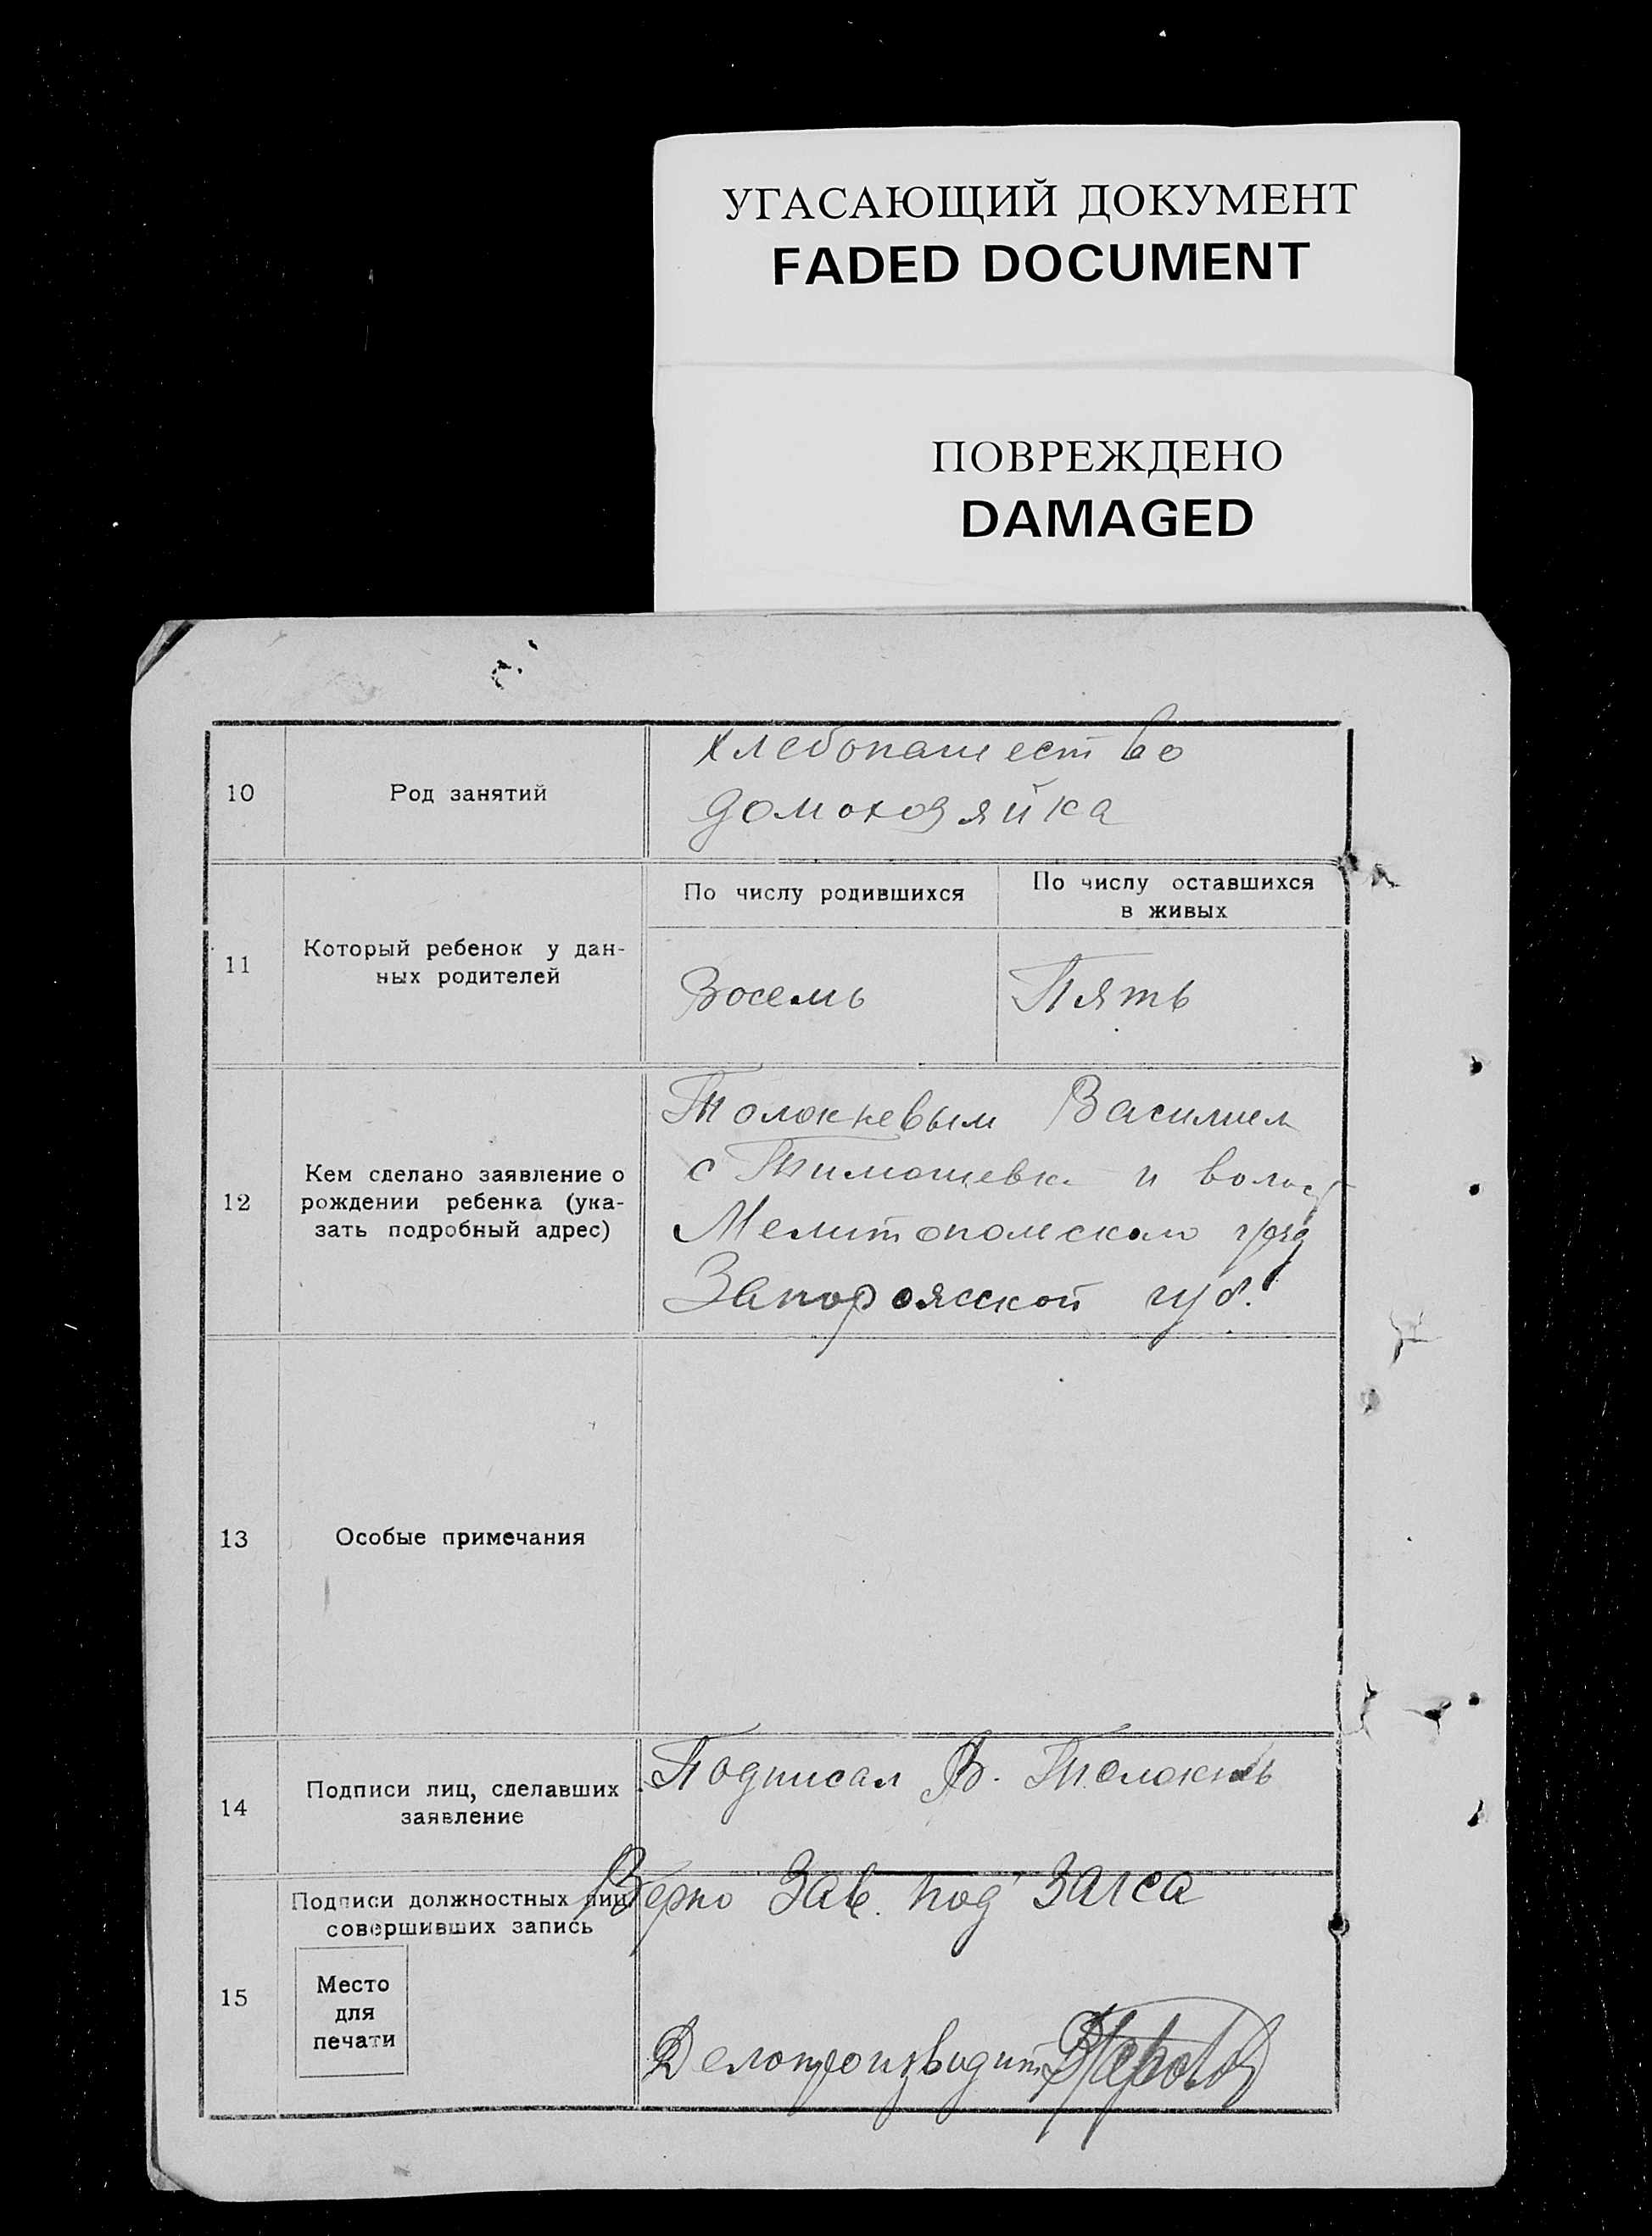 УГАСАЮЩИЙ ДОКУМЕНТ
FADED DOCUMENT
ПОВРЕЖДЕНО
DAMAGED
10
Род занятий
Хлебопашество
домохозяйка
11
Который ребенок у дан-
ных родителей
По числу родившихся
По числу оставшихся
в живых
Восемь
Пять
12
Кем сделано заявление о
рождении ребенка (ука-
зать подробный адрес)
Толокневым Василием
с Тимошевк. и волост
Мелитопольского уезд
Запорожской губ.
13
Особые примечания
14
Подписи лиц, сделавших
заявление
Подписал В. Толокнь
15
Подписи должностных лиц,
совершивших запись
Место
для
печати
Верно Зав. под Загса
Делопроизводит